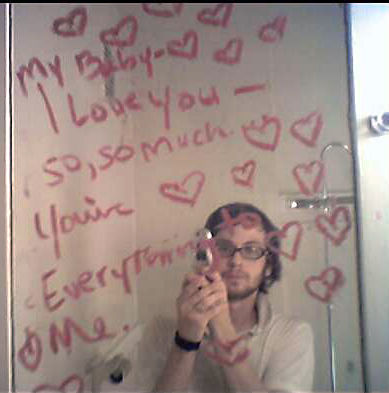 My Baby-
I Love you -
so, so much.
You're
Everything to
Me.